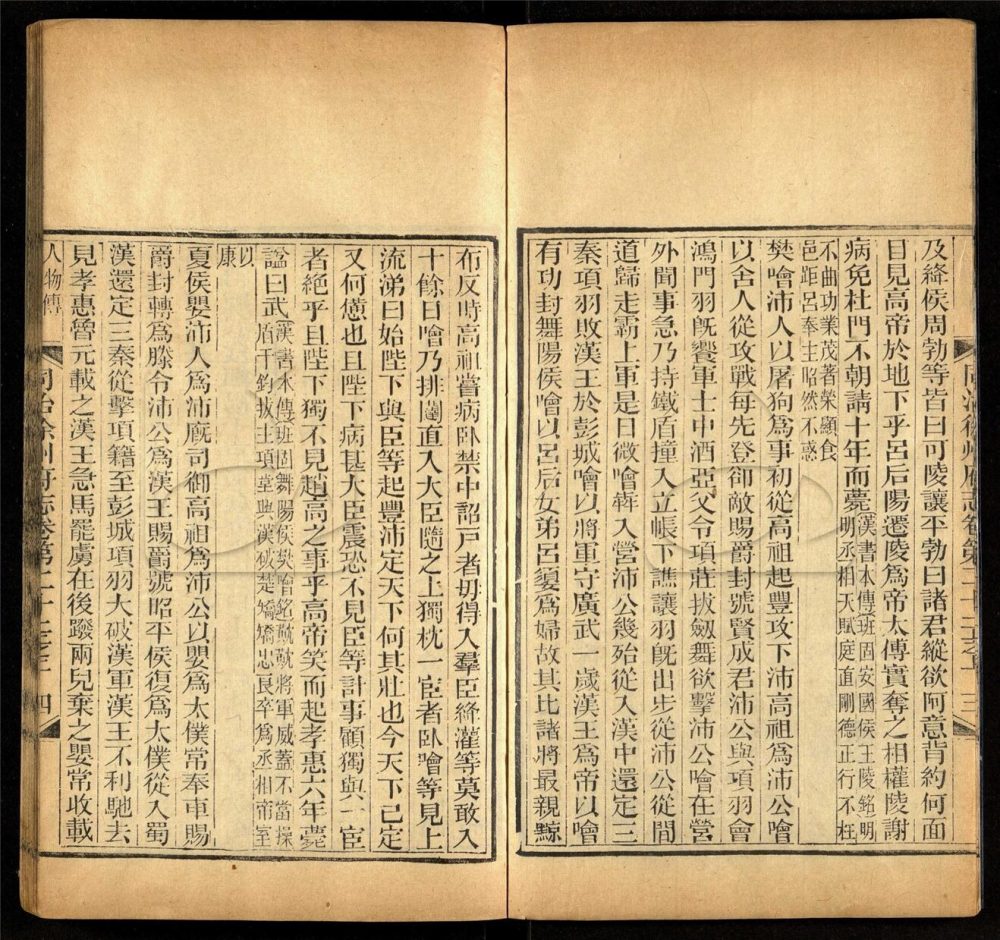 及絳侯周勃等皆曰可陵讓平勃曰諸君縱欲阿意背約何面
目見高帝於地下乎呂后陽遷陵爲帝太傅實奪之相權陵謝
病免杜門不朝請十年而薨漢書本傳班固安國侯王陵銘明明丞相天賦庭直剛德正行不枉
不曲功業茂著榮顯食
邑距呂奉主昭然不惑
樊噲沛人以屠狗爲事初從高祖起豐攻下沛高祖爲沛公噲
以舍人從攻戰每先登卻敵賜爵封號賢成君沛公與項羽會
鴻門羽既饗軍士中酒亞父令項莊拔劒舞欲擊沛公噲在營
外聞事急乃持鐵盾撞入立帳下譙讓羽既出步從沛公從間
道歸走霸上軍是日微噲犇入營沛公幾殆從入漢中還定三
秦項羽敗漢王於彭城噲以將軍守廣武一歲漢王爲帝以噲
有功封舞陽侯噲以呂后女弟呂嬃爲婦故其比諸將最親黥
同治徐州府志卷第二十二之上 三
布反時高祖嘗病臥禁中詔戸者毋得入羣臣絳灌等莫敢入
十餘日噲乃排闥直入大臣隨之上獨枕一宦者臥噲等見上
流涕曰始陛下與臣等起豐沛定天下何其壯也今天下已定
又何憊也且陛下病甚大臣震恐不見臣等計事顧獨與一宦
者絶乎且陛下獨不見趙高之事乎高帝笑而起孝惠六年薨
諡曰武漢書本傳班固舞陽侯樊噲銘將軍威蓋不當操盾千鈞拔主項堂與漢破楚矯矯忠良卒爲丞相帝室
以
康
夏侯嬰沛人爲沛廏司御高祖爲沛公以嬰爲太僕常奉車賜
爵封轉爲滕令沛公爲漢王賜爵號昭平侯復爲太僕從入蜀
漢還定三秦從擊項籍至彭城項羽大破漢軍漢王不利馳去
見孝惠魯元載之漢王急馬罷虜在後蹳兩兒棄之嬰常收載
人物傳
同治徐州府志卷第二十二之上 四